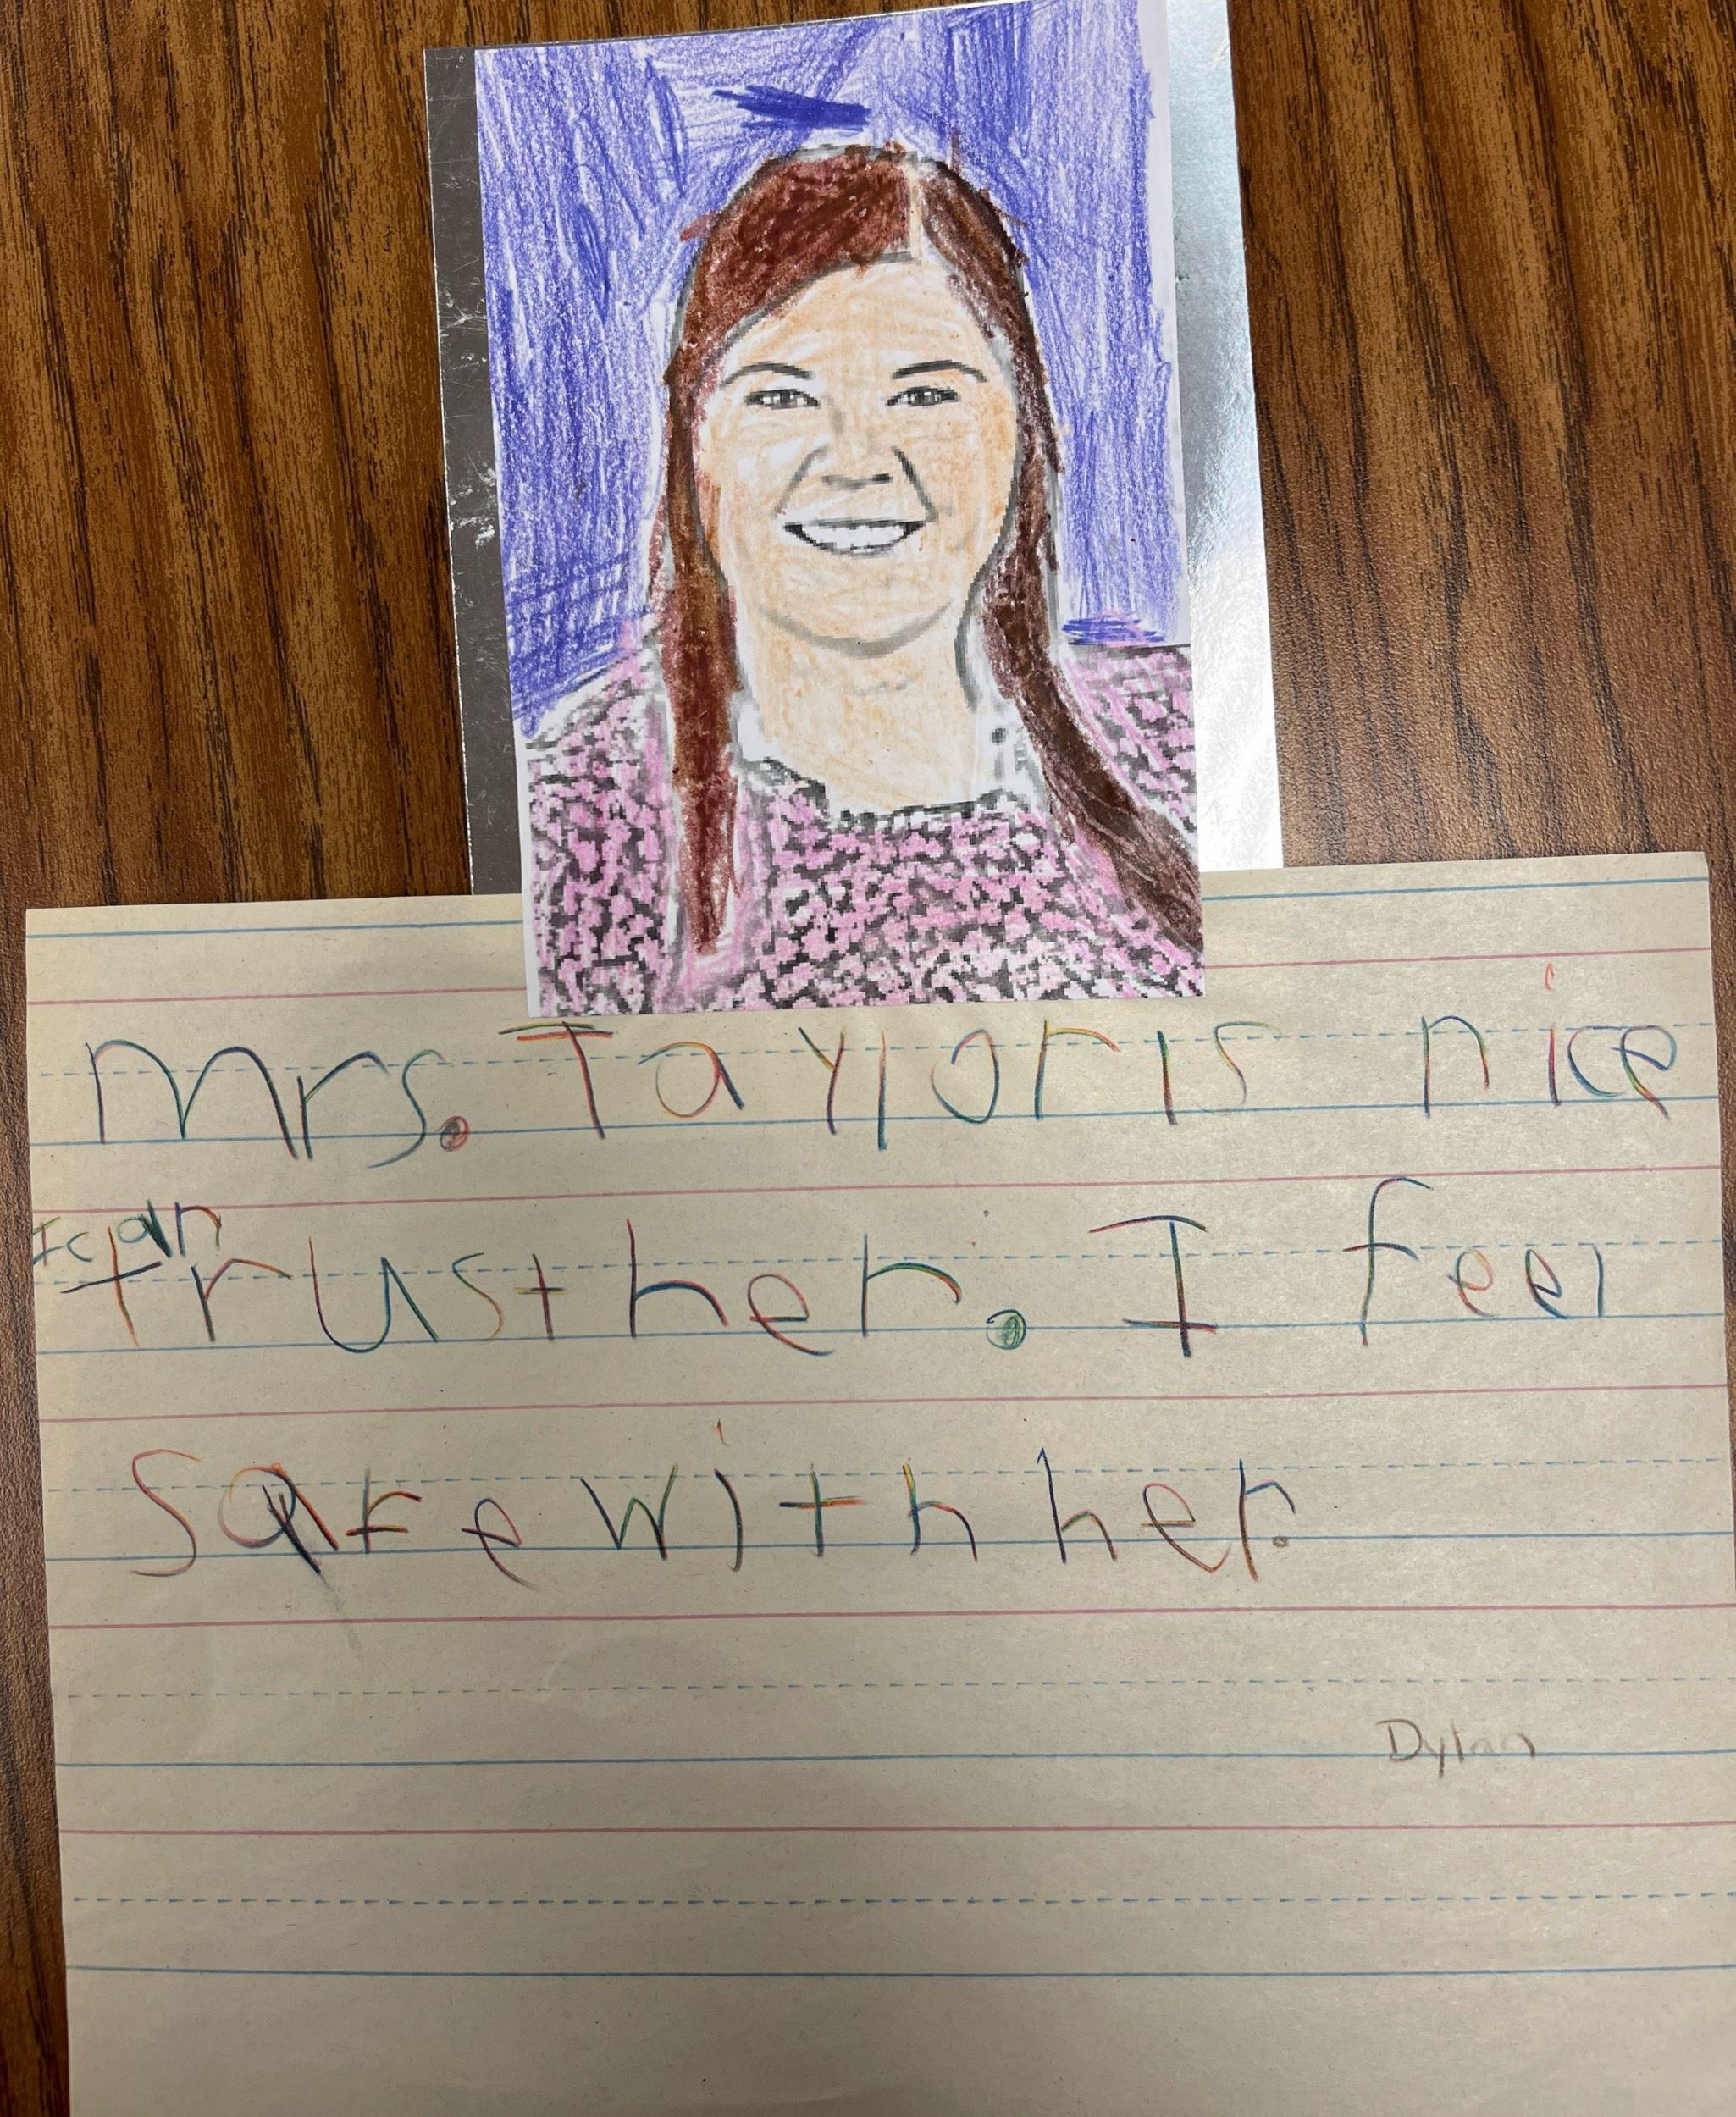 Mrs. Taylor is nice
I can
trust her. I feel
safe with her.
Dylan